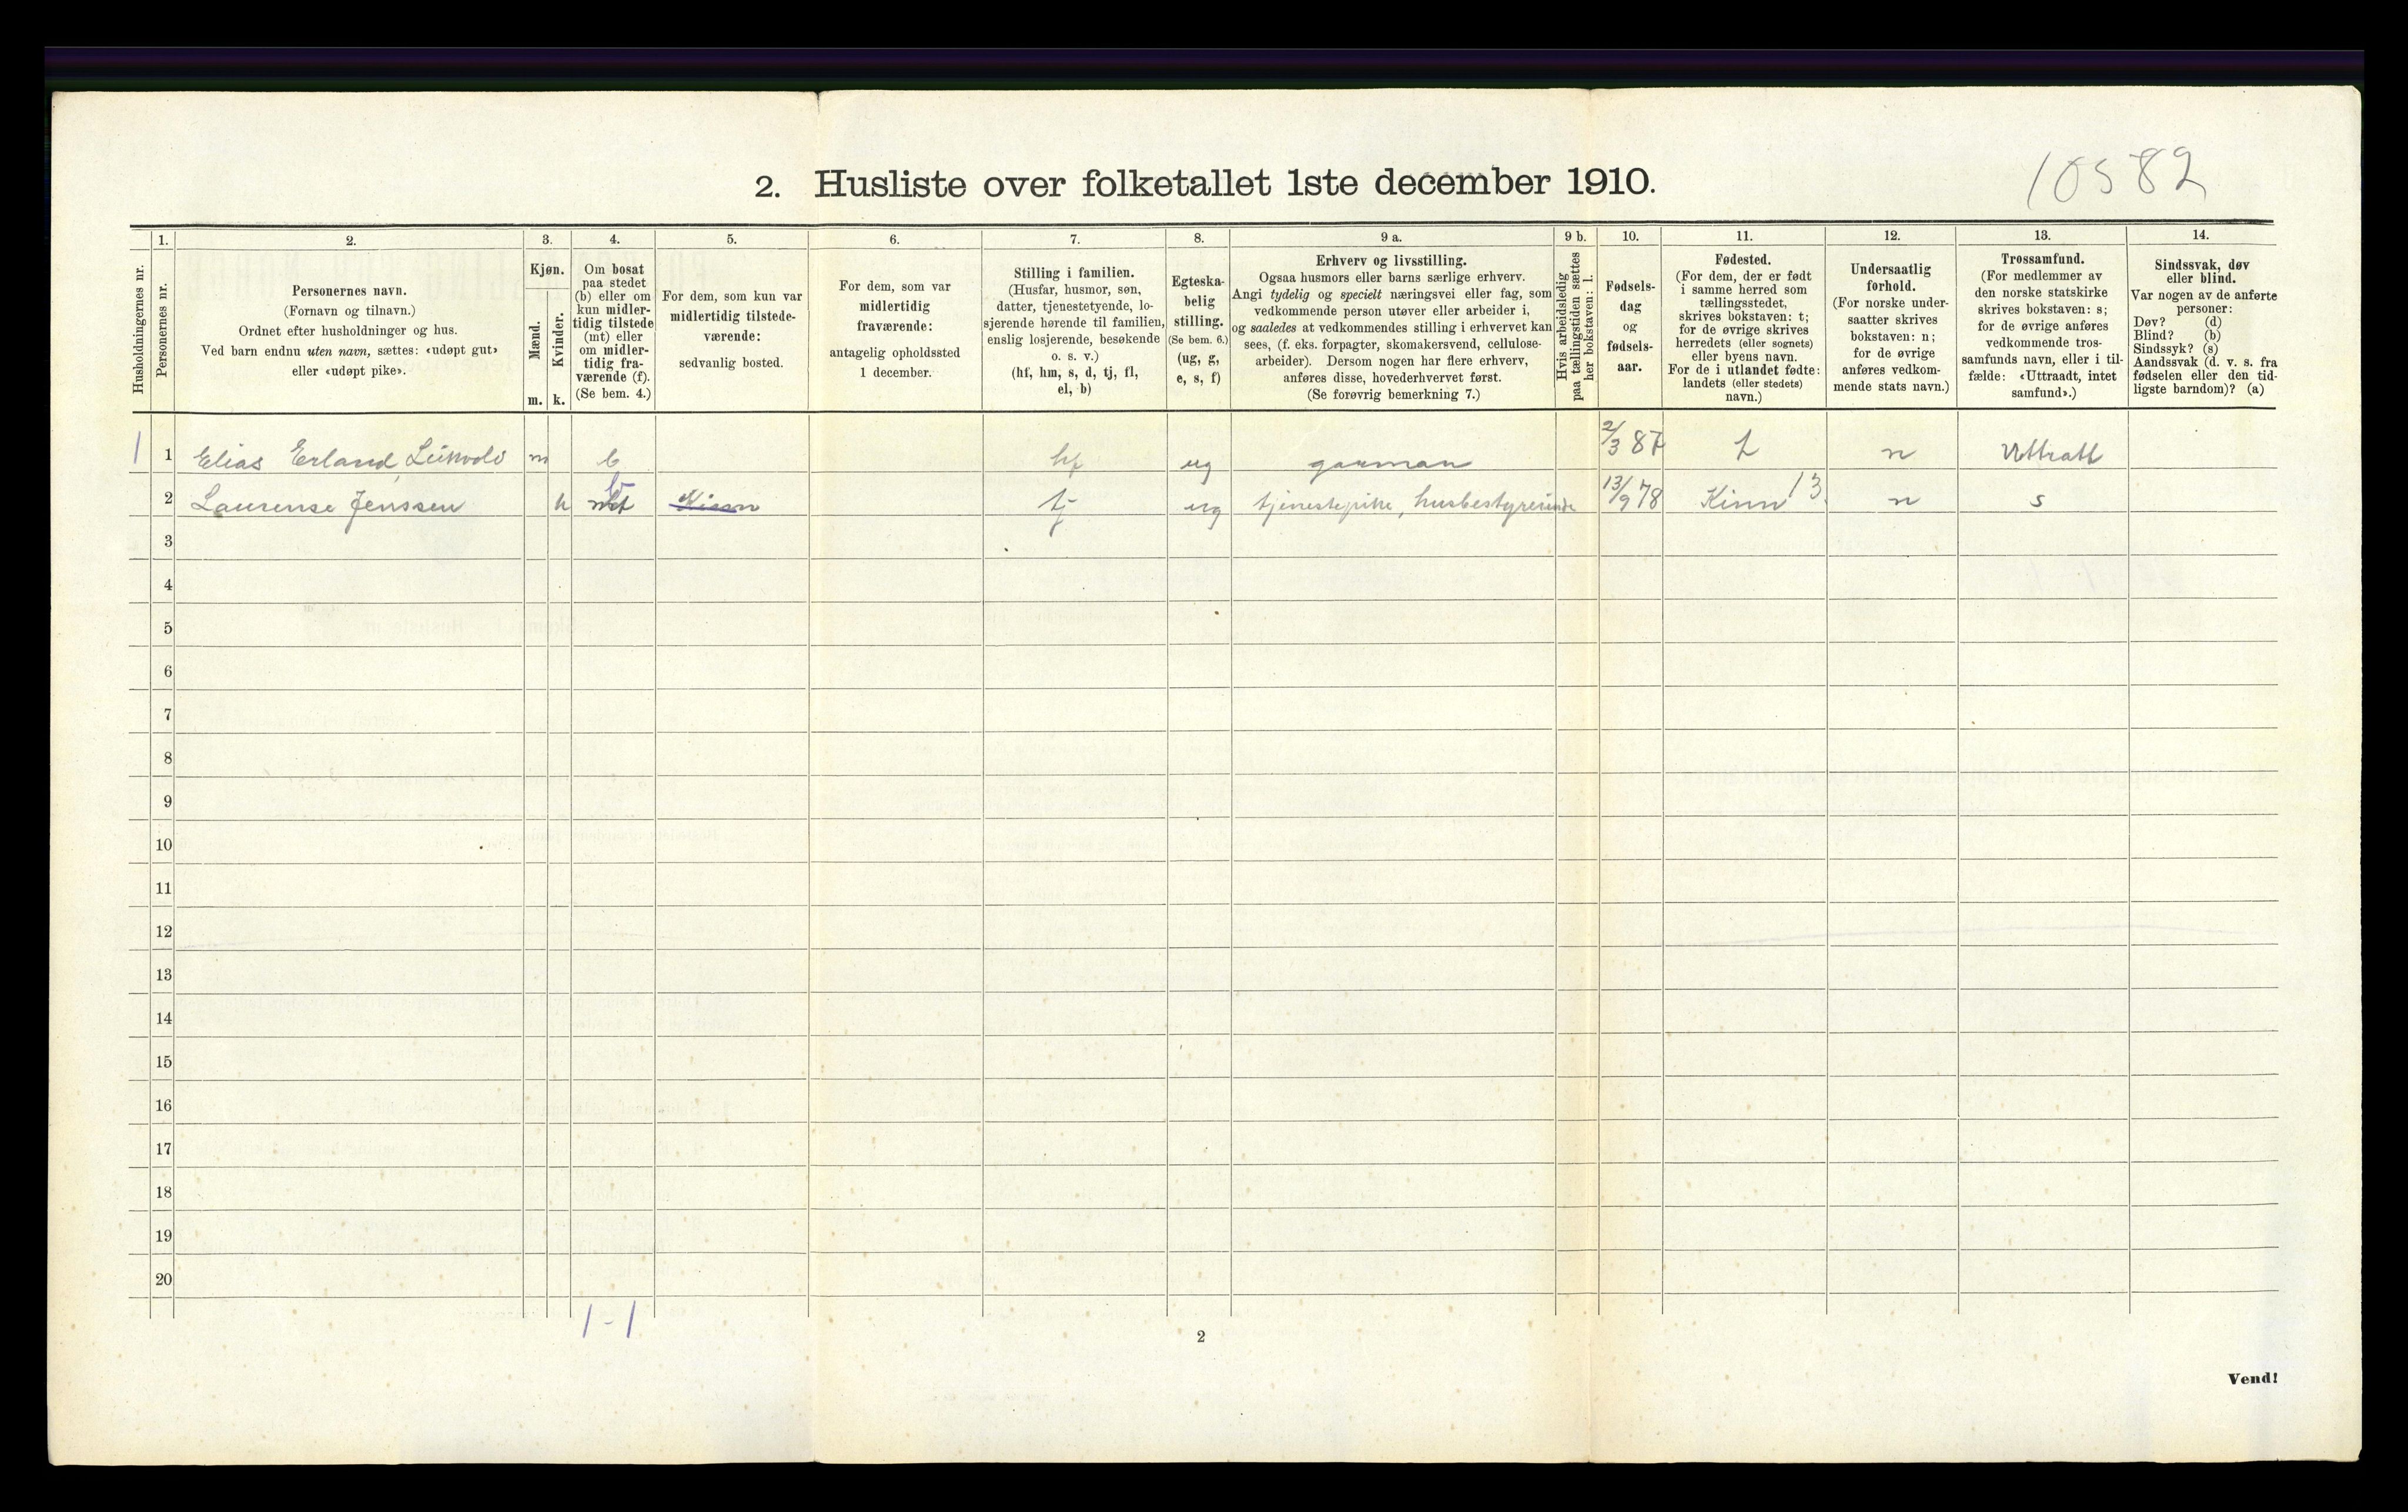 10582
2. Husliste over folketallet 1ste december 1910.
Husholdningernes nr.
1.
Personernes nr.
2.
Personernes navn.
(Fornavn og tilnavn.)
Ordnet efter husholdninger og hus.
Ved barn endnu uten navn, sættes: «udøpt gut»
eller «udøpt pike».
3.
Kjøn.
Mænd.
Kvinder.
m. k.
4.
Om bosat
paa stedet
(b) eller om
kun midler-
tidig tilstede
(mt) eller
om midler-
tidig fra-
værende (f).
(Se bem. 4.)
5.
For dem, som kun var
midlertidig tilstede-
værende:
sedvanlig bosted.
6.
For dem, som var
midlertidig
fraværende:
antagelig opholdssted
1 december.
7.
Stilling i familien.
(Husfar, husmor, søn,
datter, tjenestetyende, lo-
sjerende hørende til familien,
enslig losjerende, besøkende
o. s. v.)
(hf, hm, s, d, tj, fl,
el, b)
8.
Egteska-
belig
stilling.
(Se bem. 6.)
(ug, g,
e, s, f)
9 a.
Erhverv og livsstilling.
Ogsaa husmors eller barns særlige erhverv.
Angi tydelig og specielt næringsvei eller fag, som
vedkommende person utøver eller arbeider i,
og saaledes at vedkommendes stilling i erhvervet kan
sees, (f. eks. forpagter, skomakersvend, cellulose-
arbeider). Dersom nogen har flere erhverv,
anføres disse, hovederhvervet først.
(Se forøvrig bemerkning 7.)
9 b.
Hvis arbeidsledig
paa tællingstiden sættes
her bokstaven: l.
10.
Fødsels-
dag
og
fødsels-
aar.
11.
Fødested.
(For dem, der er født
i samme herred som
tællingsstedet,
skrives bokstaven: t;
for de øvrige skrives
herredets (eller sognets)
eller byens navn.
For de i utlandet fødte:
landets (eller stedets)
navn.)
12.
Undersaatlig
forhold.
(For norske under-
saatter skrives
bokstaven: n;
for de øvrige
anføres vedkom-
mende stats navn.)
13.
Trossamfund.
(For medlemmer av
den norske statskirke
skrives bokstaven: s;
for de øvrige anføres
vedkommende tros-
samfunds navn, eller i til-
fælde: «Uttraadt, intet
samfund».)
14.
Sindssvak, døv
eller blind.
Var nogen av de anførte
personer:
Døv? (d)
Blind? (b)
Sindssyk? (s)
Aandssvak (d. v. s. fra
fødselen eller den tid-
ligste barndom)? (a)
1 1 Elias Erland m b hf ug garman 2/3 87 t n Uttratt
2 Laurense Jenssen k mt b Kinn tj ug tjenestepike, husbestyrerinde 13/9 78 Kinn 13 n s
3
4
5
6
7
8
9
10
11
12
13
14
15
16
17
18
19
20
1-1
2
Vend!